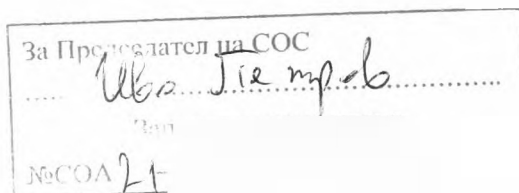 За Председател на СОС
Иво Петров
Зап
№СОА 21-